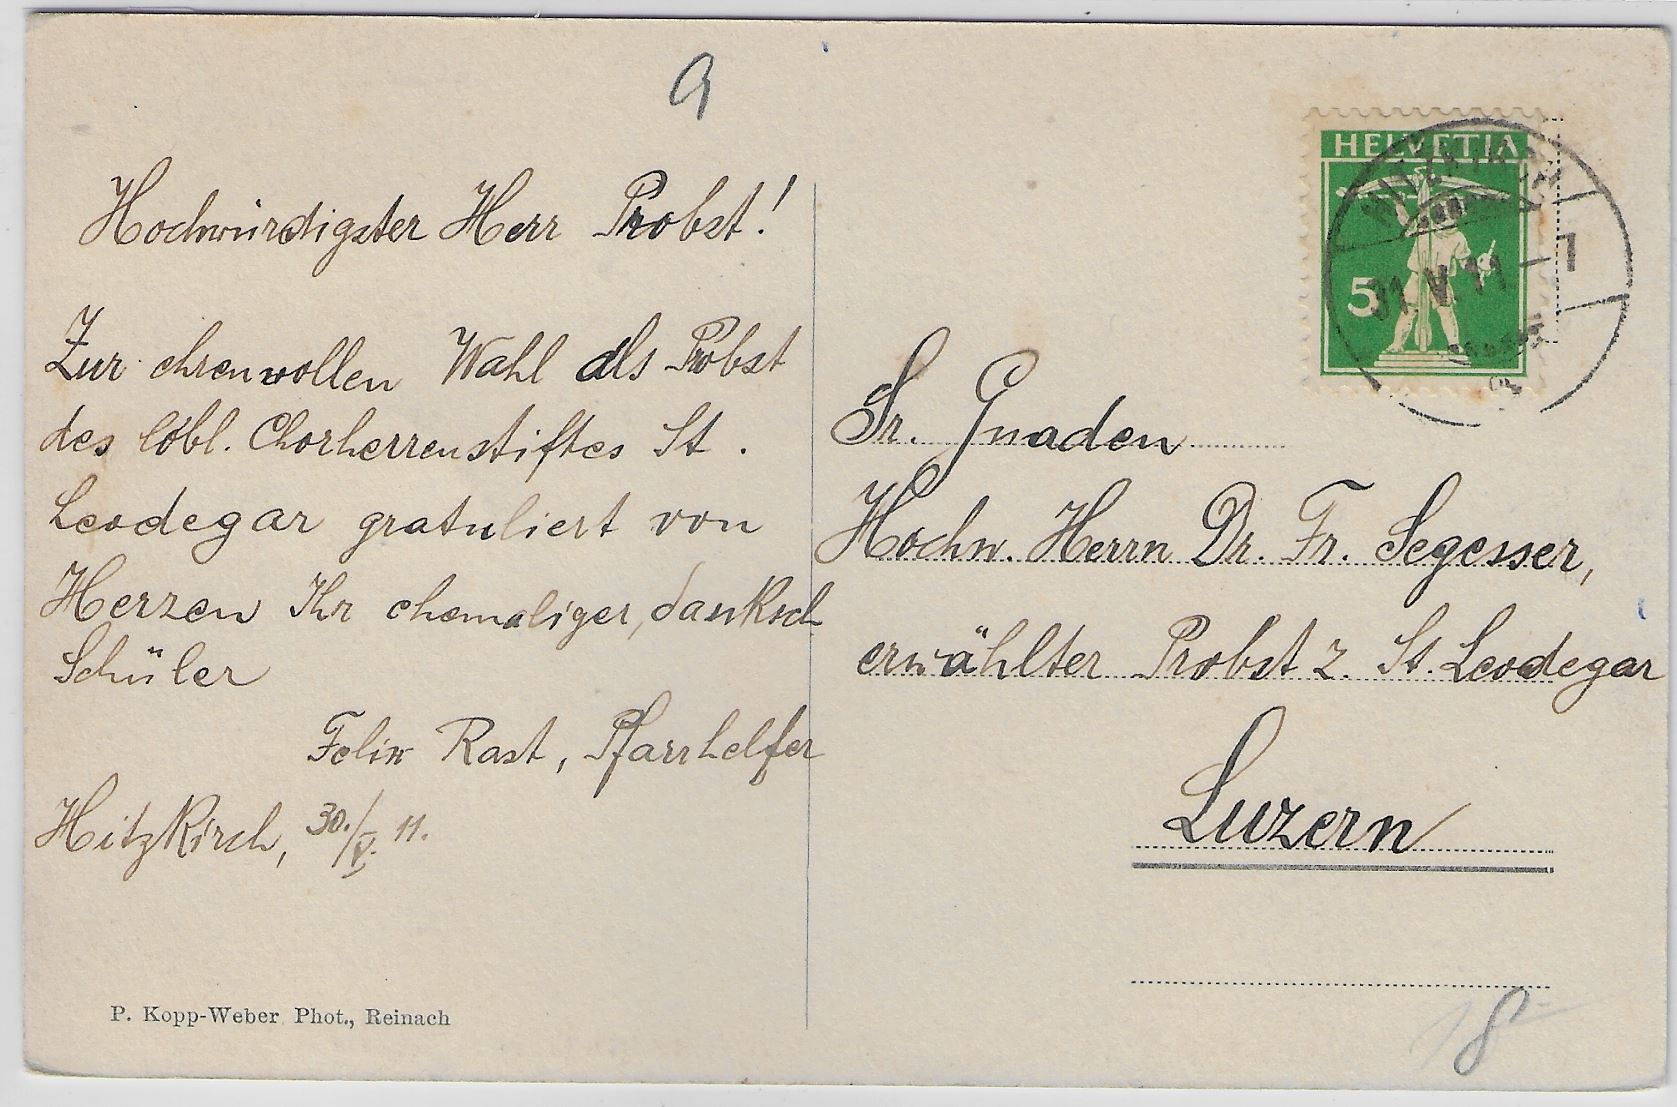 9
Hochwürdigster Herr Probst!
Zur ehrenvollen Wahl als Probst
des löbl. Chorherrenstiftes St.
Leodegar gratuliert von
Herzen Ihr ehemaliger, danksch
Schüler
Felix Rast, Pfarrhelfer
Hitzkirch, 30./V. 11.
P. Kopp-Weber Phot., Reinach
HELVETIA
5
HITZKIRCH
31.V.11-1
Sr. Gnaden
Hochw. Herrn Dr. Fr. Segesser,
erwählter Probst z. St. Leodegar
Luzern
18-